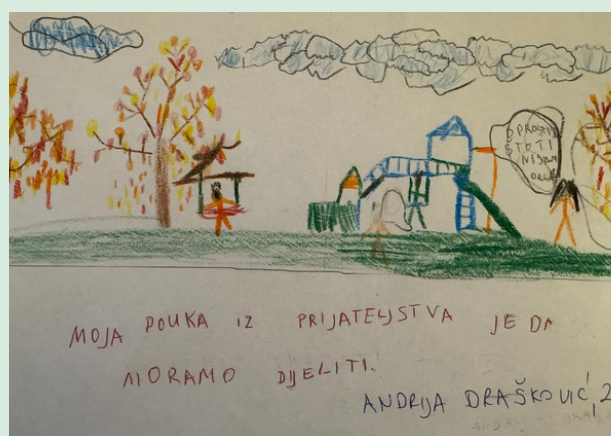 PROSTI
TO TI
NISAM
MOJA POUKA IZ PRIJATELJSTVA JE DA
MORAMO DIJELITI.
ANDRIJA DRAŠKOVIĆ, 2